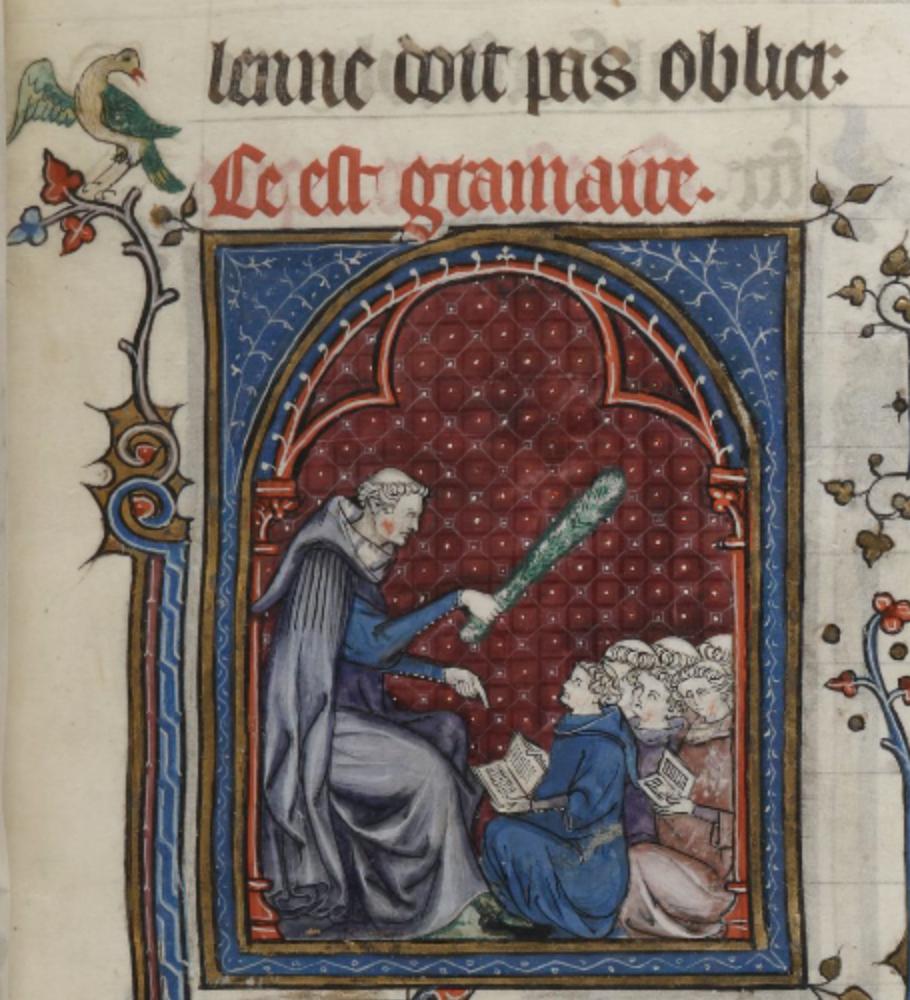 lenne doit pas oblier.
Ce est gramaire.